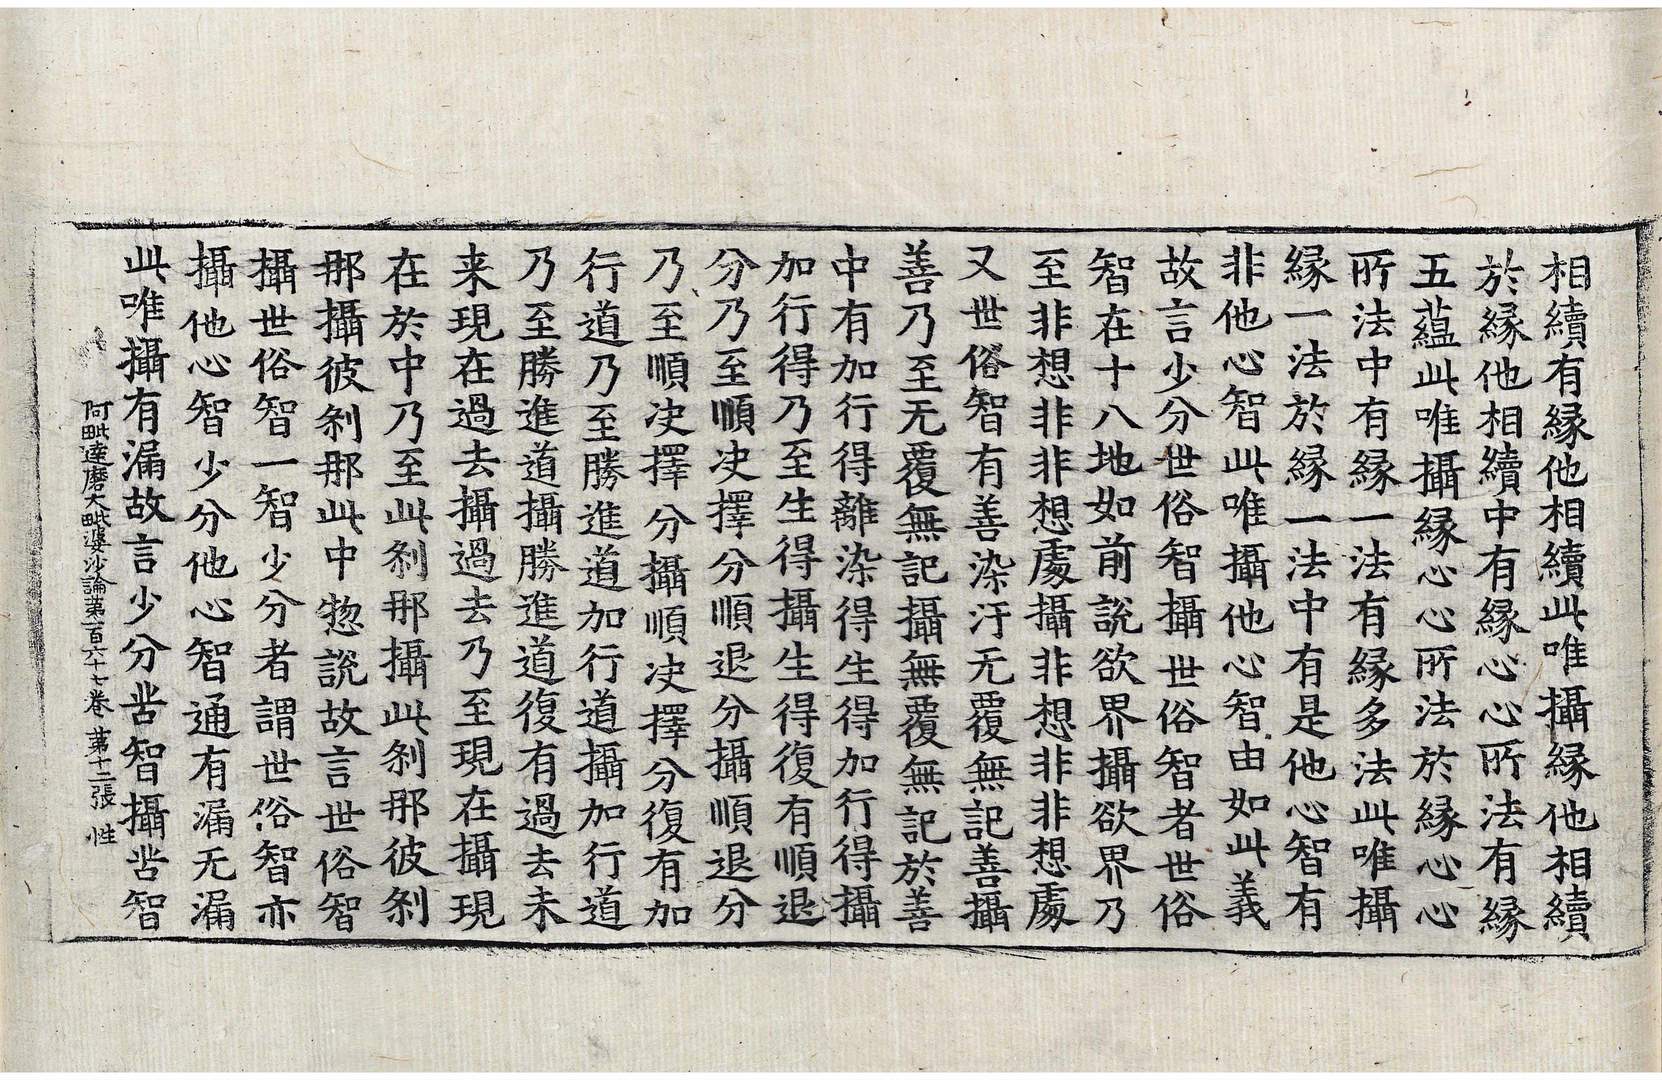 相續有縁他相續此唯攝縁他相續
於縁他相續中有縁心心所法有縁
五蘊此唯攝縁心心所法於縁心心
所法中有縁一法有縁多法此唯攝
縁一法於縁一法中有是他心智有
非他心智此唯攝他心智由如此義
故言少分世俗智攝世俗智者世俗
智在十八地如前說欲界攝欲界乃
至非想非非想處攝非想非非想處
又世俗智有善染汙无覆無記善攝
善乃至无覆無記攝無覆無記於善
中有加行得離染得生得加行得攝
加行得乃至生得攝生得復有順退
分乃至順决擇分順退分攝順退分
乃至順决擇分攝順决擇分復有加
行道乃至勝進道加行道攝加行道
乃至勝進道攝勝進道復有過去未
来現在過去攝過去乃至現在攝現
在於中乃至此剎那攝此剎那彼剎
那攝彼剎那此中惣說故言世俗智
攝世俗智一智少分者謂世俗智亦
攝他心智少分他心智通有漏无漏
此唯攝有漏故言少分苦智攝苦智
阿毗達磨大毗婆沙論苐一百六十七卷 苐十二張 性